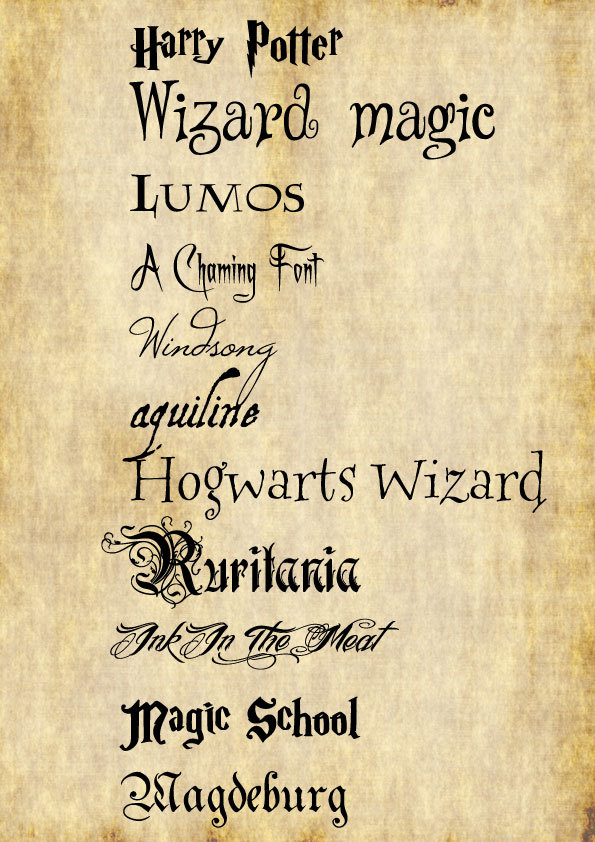 Harry Potter
Wizard magic
Lumos
A Chaming Font
Windsong
aquiline
Hogwarts Wizard
Ruritania
Ink In The Meat
Magic School
Magdeburg